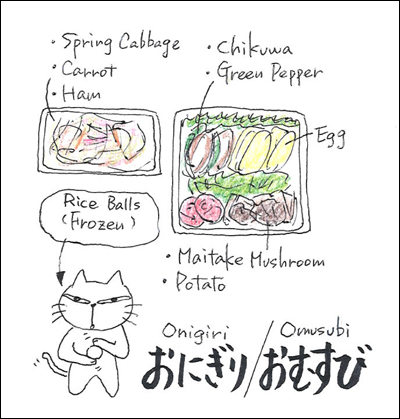 ・Spring Cabbage
・Carrot
・Ham
・Chikuwa
・Green Pepper
Egg
Rice Balls
(Frozen)
・Maitake Mushroom
・Potato
Onigiri
おにぎり/
Omusubi
おむすび